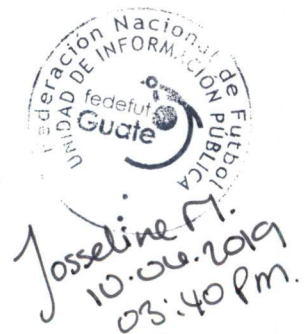 Federación Nacional de Futbol
UNIDAD DE INFORMACIÓN PÚBLICA
fedefut
Guate
Josseline M.
10.04.2019
03:40 Pm.